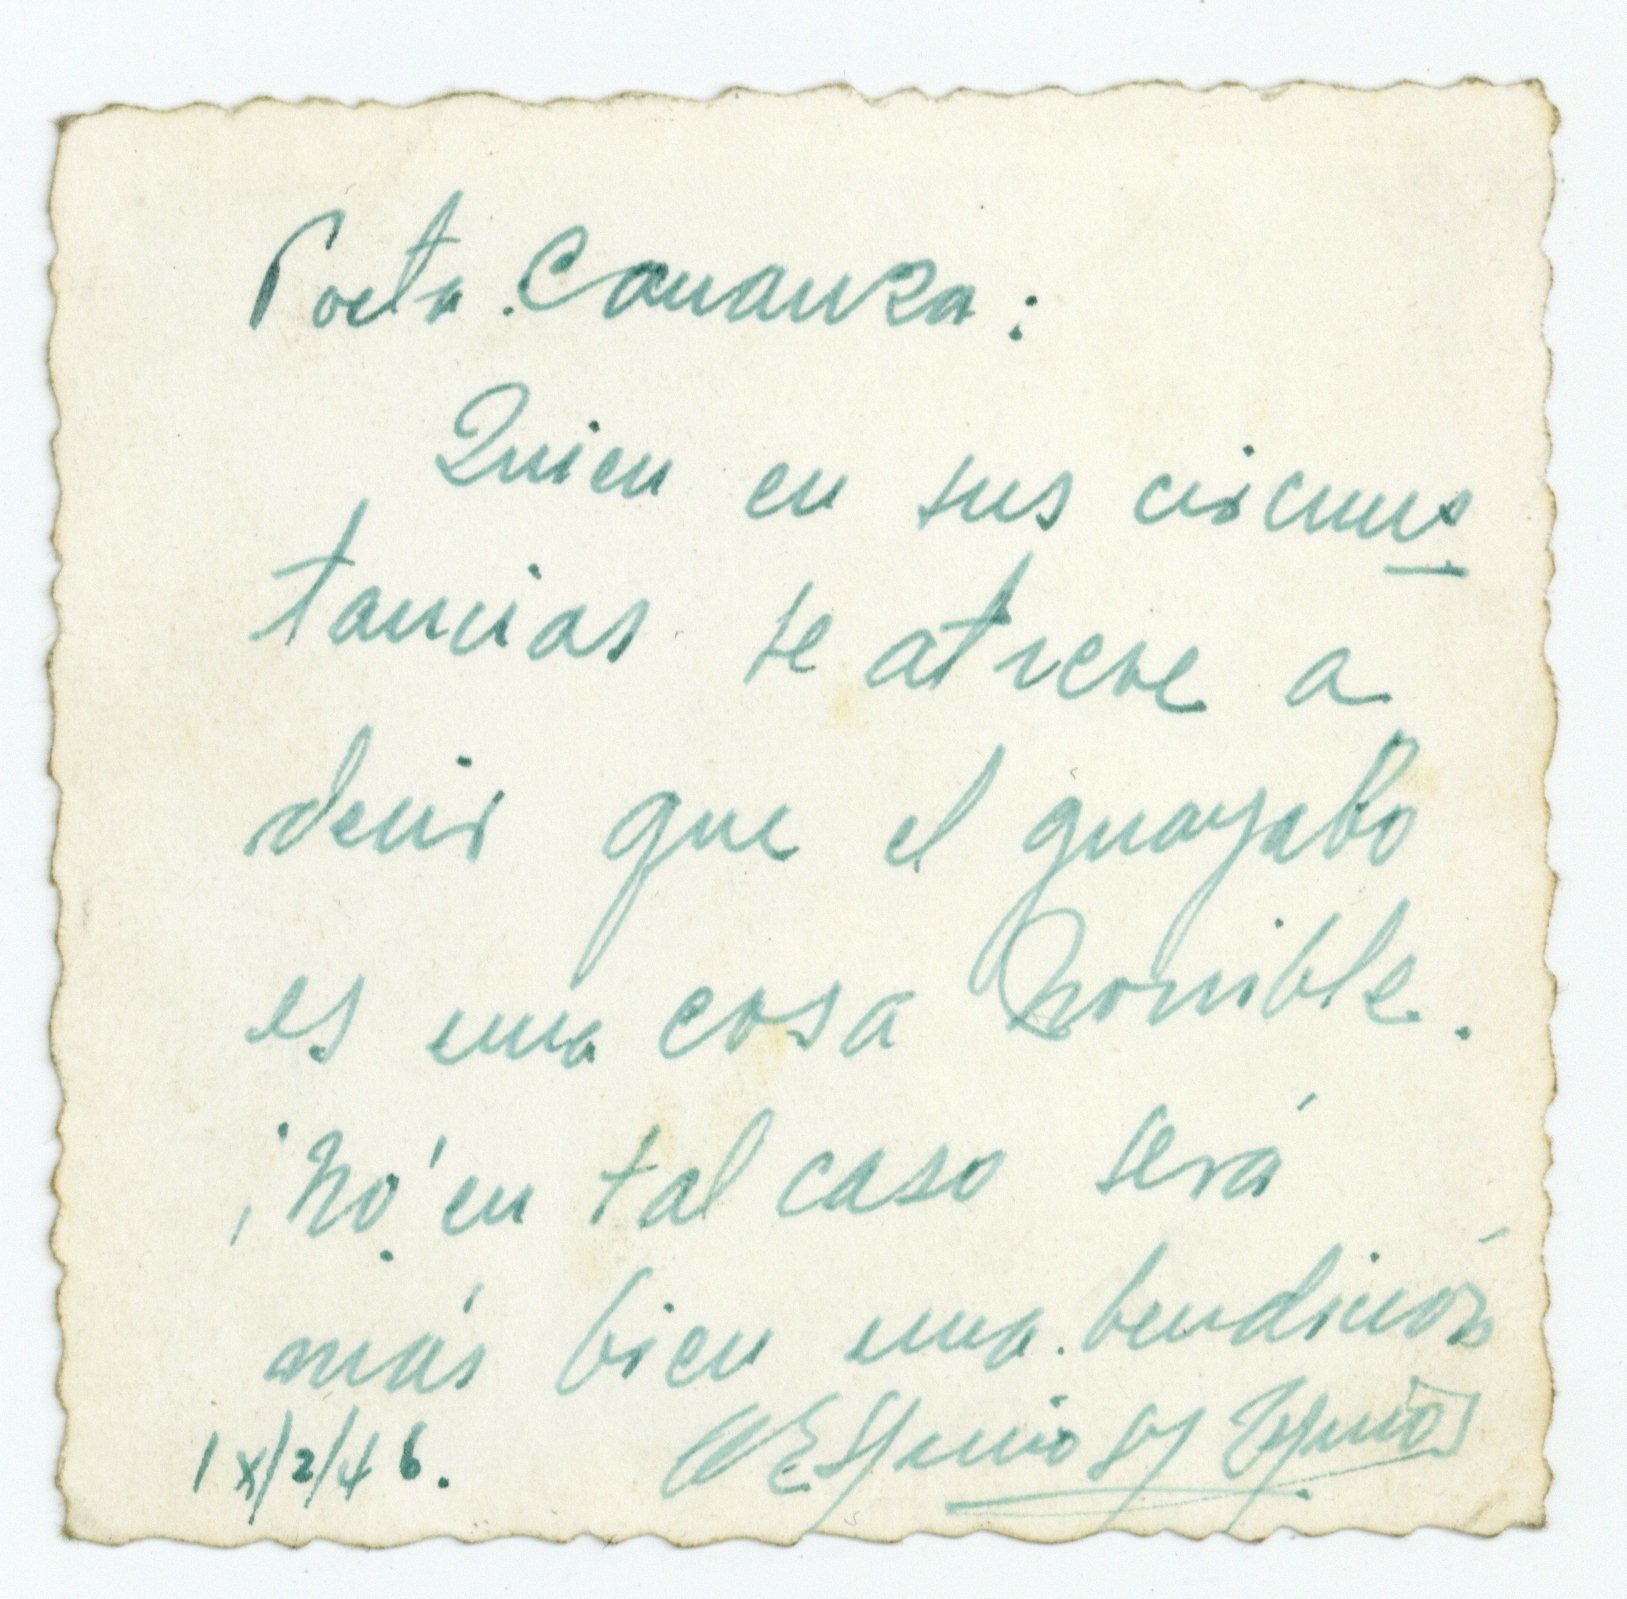 Poeta Carranza:
Quien en sus circuns
tancias se atreve a
decir que el guayabo
es una cosa horrible.
¡No! en tal caso será
más bien una bendición
IX/2/46.